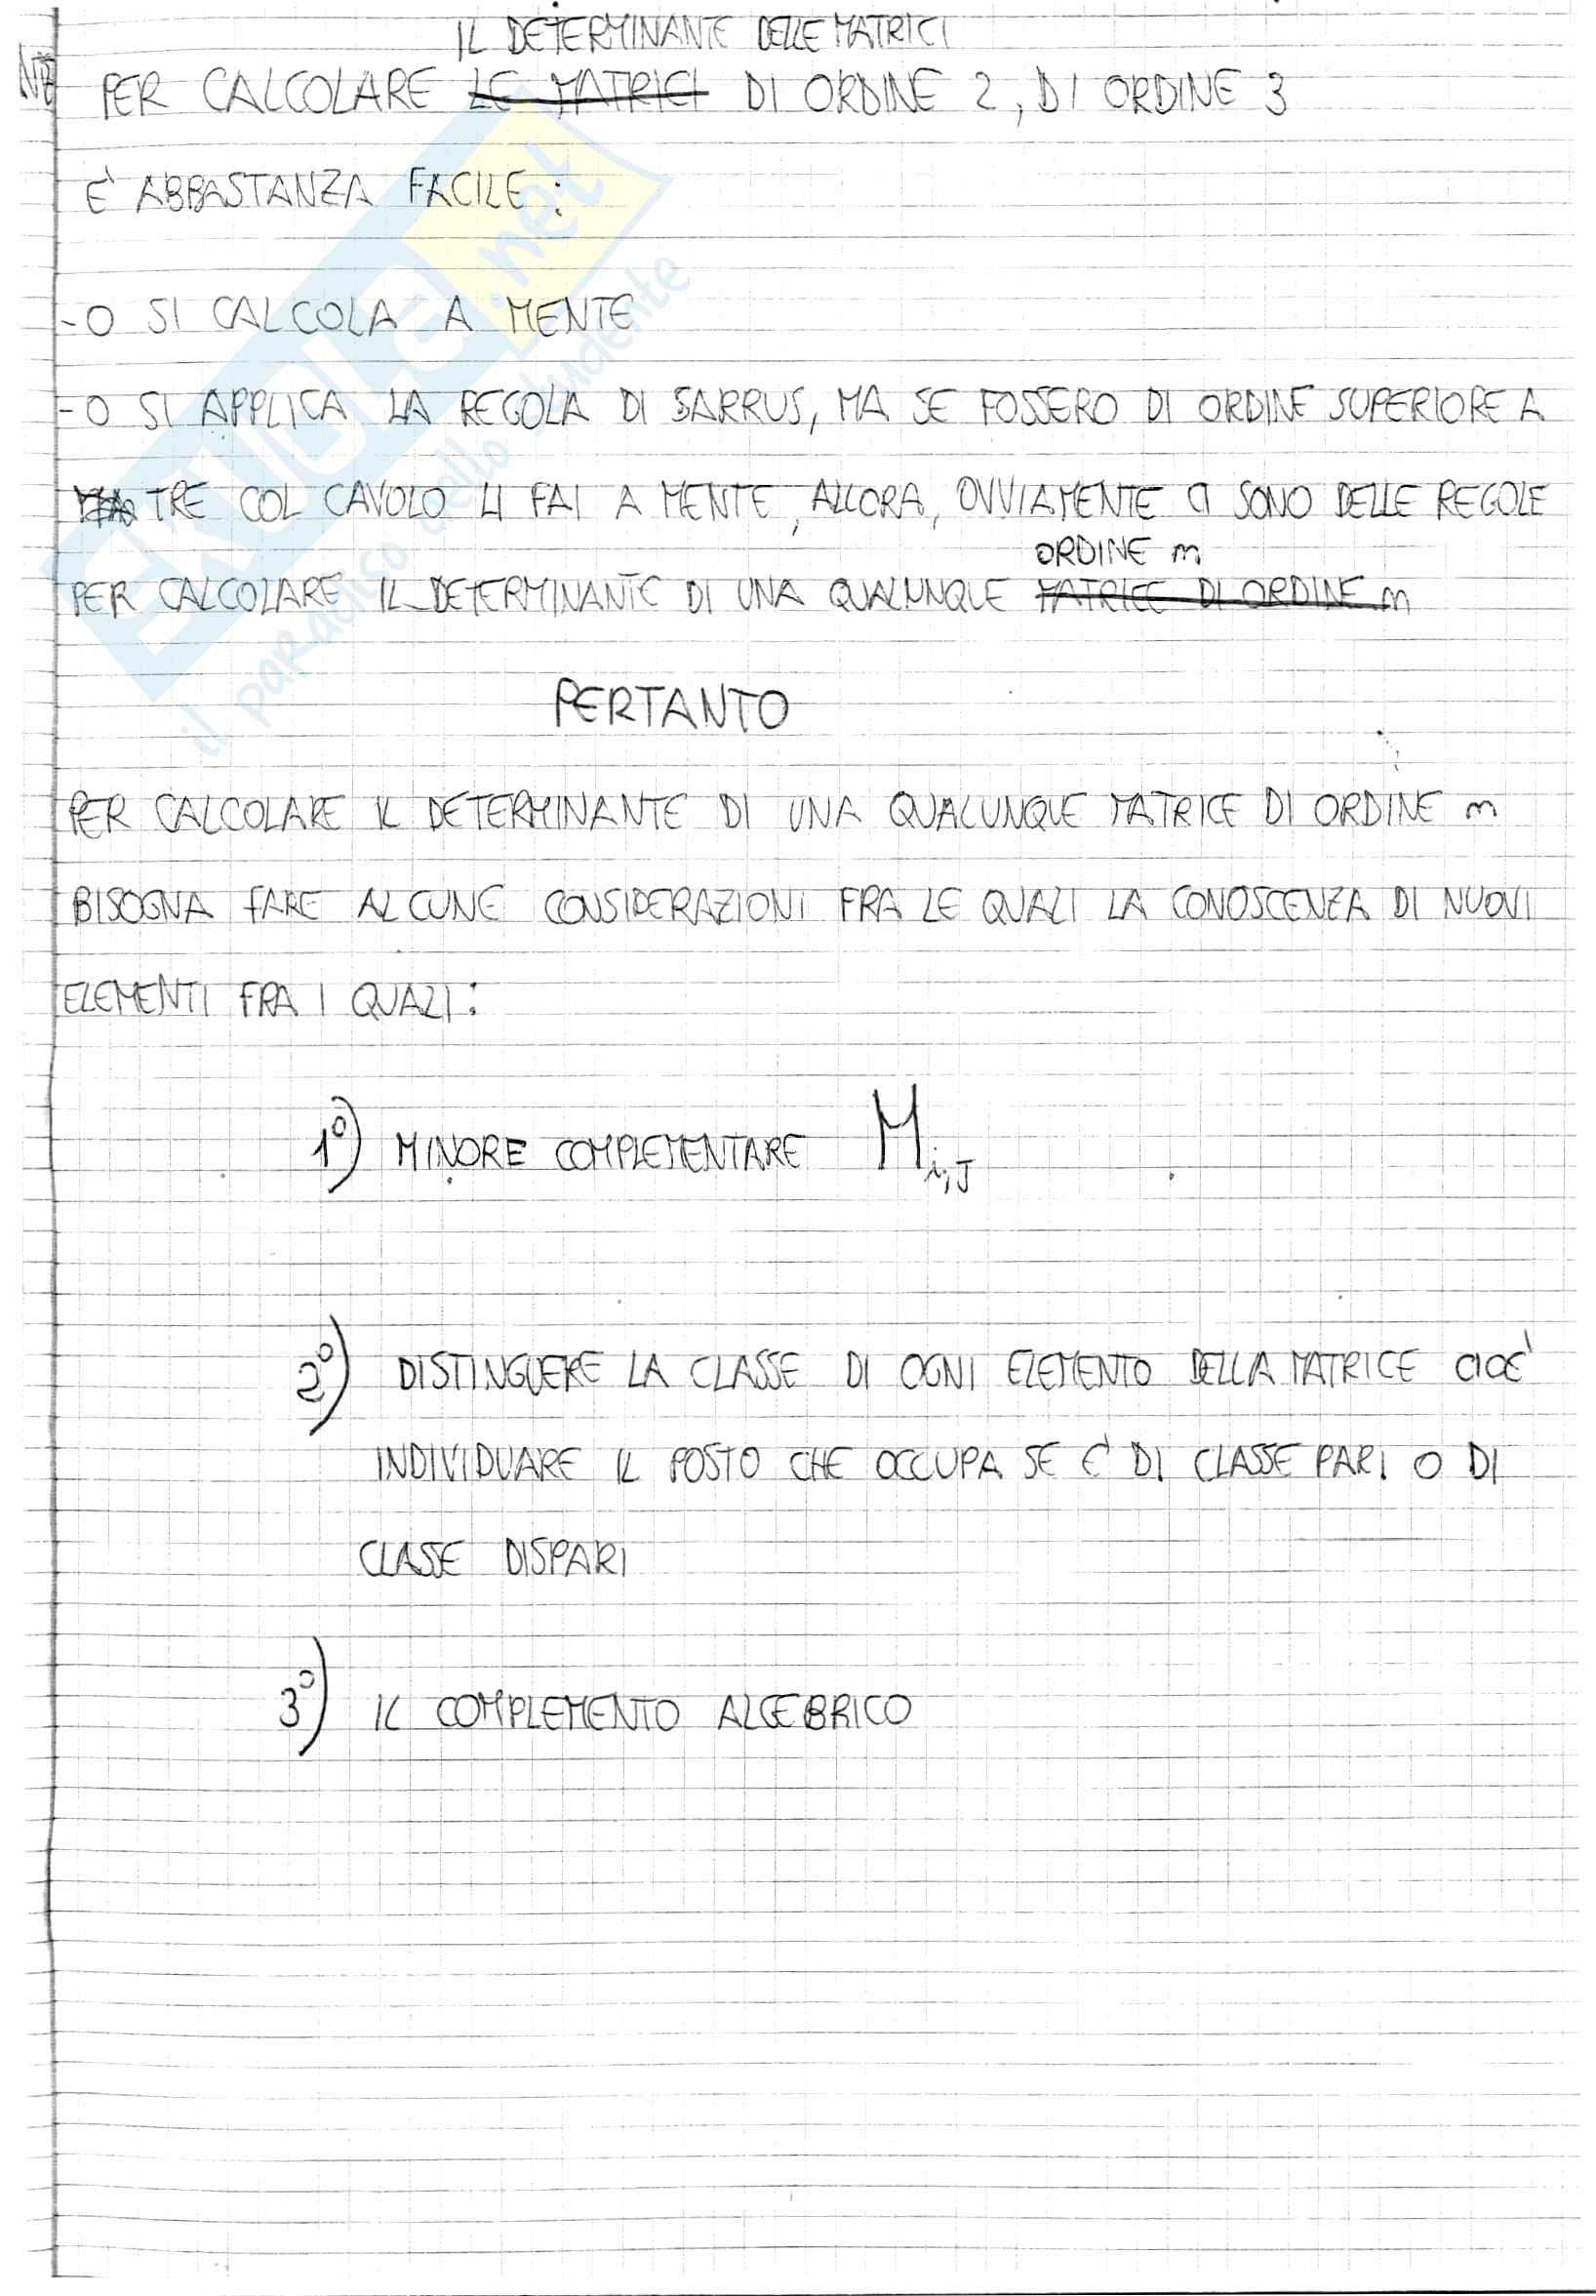 IL DETERMINANTE DELLE MATRICI
NB
PER CALCOLARE LE MATRICI DI ORDINE 2, DI ORDINE 3
E' ABBASTANZA FACILE:
- O SI CALCOLA A MENTE
- O SI APPLICA LA REGOLA DI SARRUS, MA SE FOSSERO DI ORDINE SUPERIORE A
TRE COL CAVOLO LI FAI A MENTE, ALLORA, OVVIAMENTE CI SONO DELLE REGOLE
ORDINE m
PER CALCOLARE IL DETERMINANTE DI UNA QUALUNQUE MATRICE DI ORDINE m
PERTANTO
PER CALCOLARE IL DETERMINANTE DI UNA QUALUNQUE MATRICE DI ORDINE m
BISOGNA FARE ALCUNE CONSIDERAZIONI FRA LE QUALI LA CONOSCENZA DI NUOVI
ELEMENTI FRA I QUALI:
1°) MINORE COMPLEMENTARE M i,J
2°) DISTINGUERE LA CLASSE DI OGNI ELEMENTO DELLA MATRICE CIOE'
INDIVIDUARE IL POSTO CHE OCCUPA SE E' DI CLASSE PARI O DI
CLASSE DISPARI
3°) IL COMPLEMENTO ALGEBRICO
SKUOLA.net
il paradiso dello studente